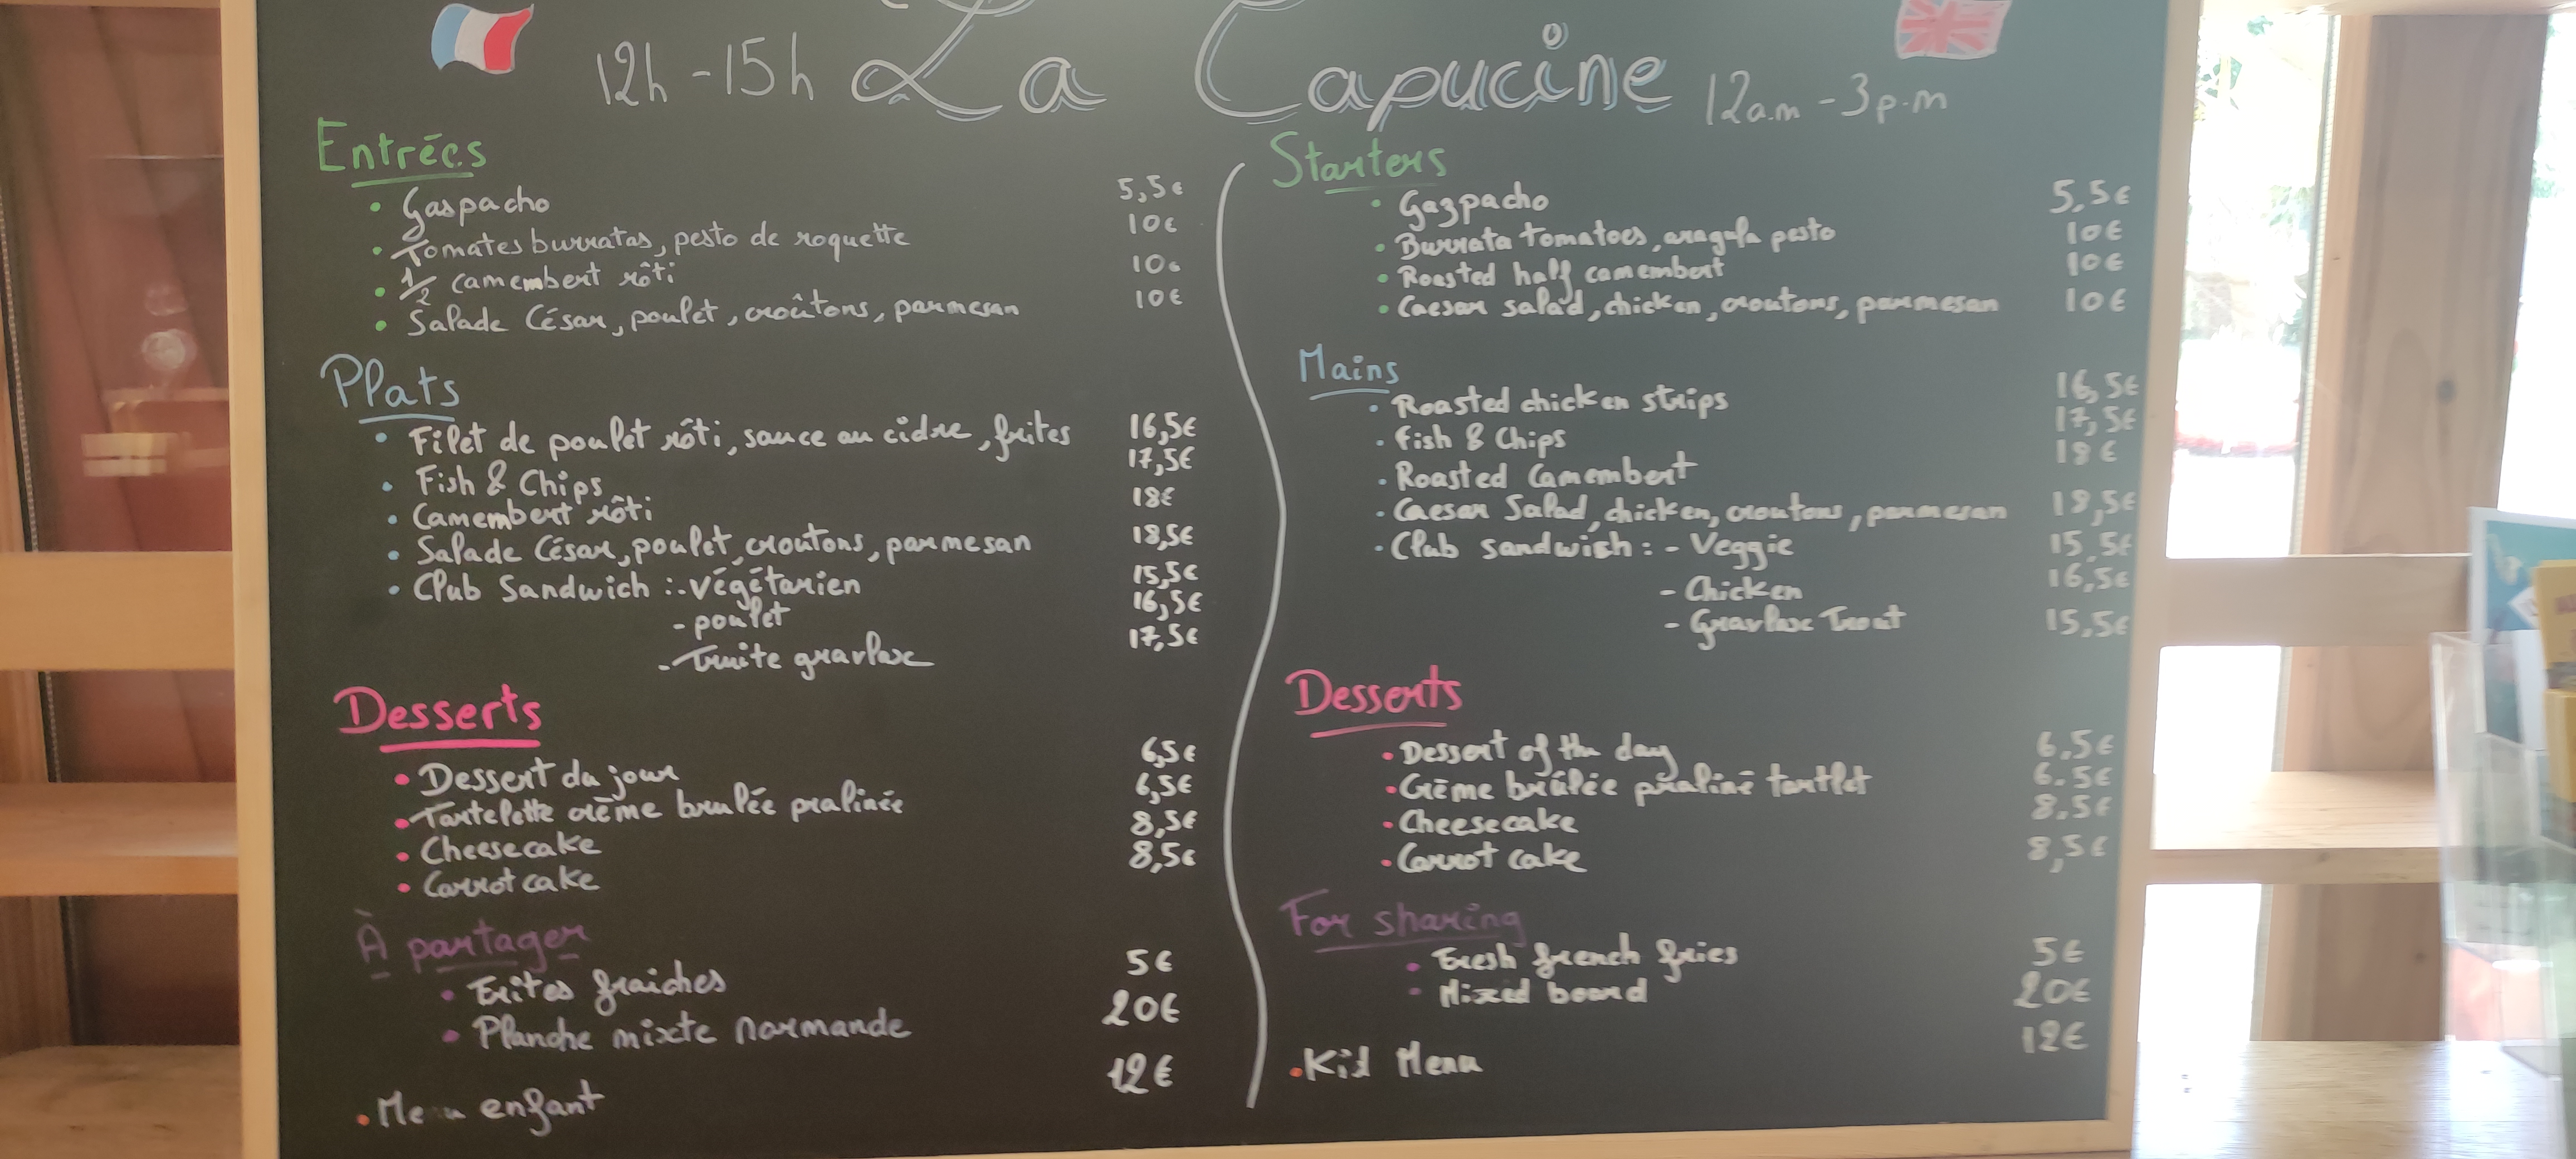 12h - 15h La Capucine 12a.m - 3p.m
Entrées
• Gaspacho 5,5€
• Tomates burratas, pesto de roquette 10€
• 1/2 camembert rôti 10€
• Salade César, poulet, croûtons, parmesan 10€
Plats
• Filet de poulet rôti, sauce au cidre, frites 16,5€
• Fish & Chips 17,5€
• Camembert rôti 18€
• Salade César, poulet, croutons, parmesan 18,5€
• Club Sandwich : - végétarien 15,5€
- poulet 16,5€
- Truite gravlax 17,5€
Desserts
• Dessert du jour 6,5€
• Tartelette crème brulée pralinée 6,5€
• Cheesecake 8,5€
• Carrot cake 8,5€
À partager
• Frites fraiches 5€
• Planche mixte normande 20€
• Menu enfant 12€
Starters
• Gazpacho 5,5€
• Burrata tomatoes, aragula pesto 10€
• Roasted half camembert 10€
• Caesar salad, chicken, croutons, parmesan 10€
Mains
• Roasted chicken strips 16,5€
• Fish & Chips 17,5€
• Roasted Camembert 18€
• Caesar Salad, chicken, croutons, parmesan 18,5€
• Club sandwish : - Veggie 15,5€
- Chicken 16,5€
- Gravlax Trout 15,5€
Desserts
• Dessert of the day 6,5€
• Crème brûlée praliné tartlet 6.5€
• Cheesecake 8,5€
• Carrot cake 8,5€
For sharing
• Fresh french fries 5€
• Mixed board 20€
• Kid Menu 12€